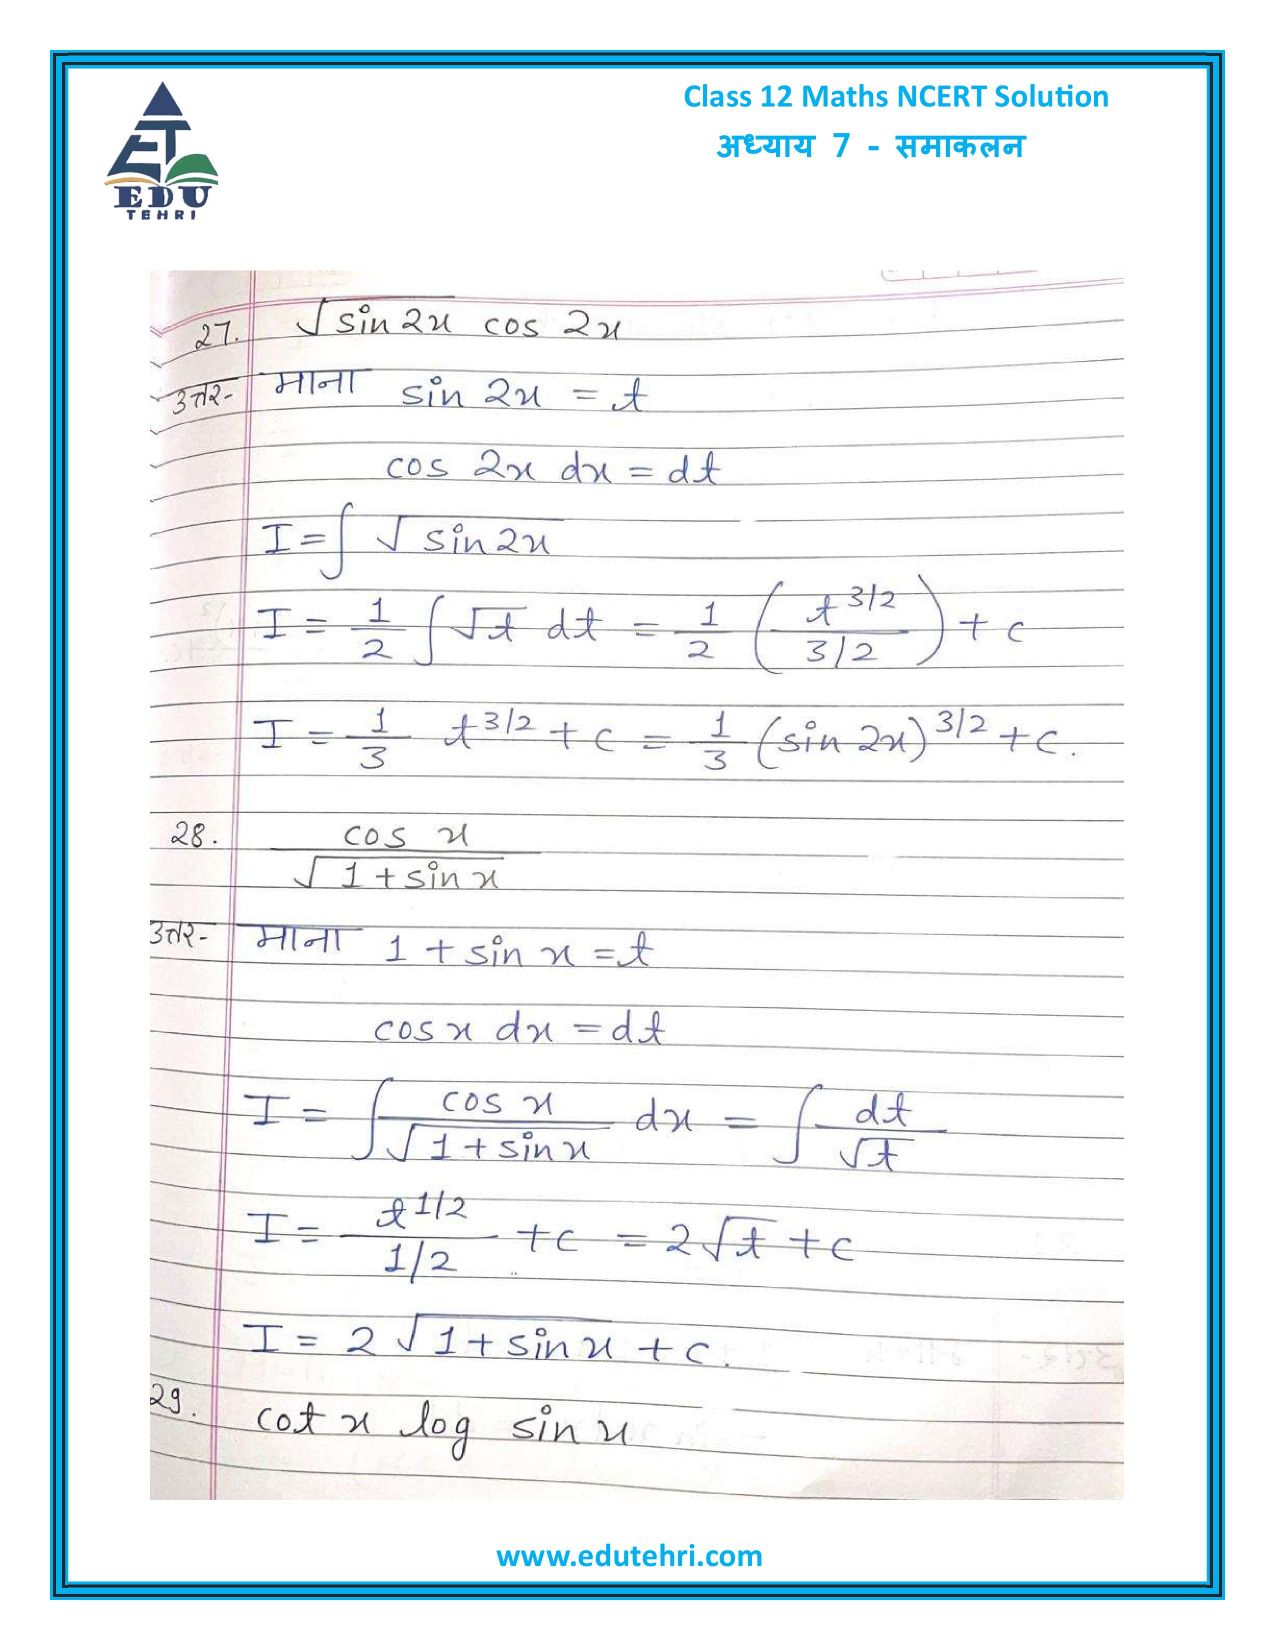 Class 12 Maths NCERT Solution
अध्याय 7 - समाकलन
EDU
TEHRI
27. √sin 2x cos 2x
उत्तर- माना sin 2x = t
cos 2x dx = dt
I = ∫ √sin 2x
I = 1/2 ∫ √t dt = 1/2 (t^3/2 / 3/2) + c
I = 1/3 t^3/2 + c = 1/3 (sin 2x)^3/2 + c.
28. cos x / √1 + sin x
उत्तर- माना 1 + sin x = t
cos x dx = dt
I = ∫ cos x / √1 + sin x dx = ∫ dt / √t
I = t^1/2 / 1/2 + c = 2√t + c
I = 2 √1 + sin x + c.
29. cot x log sin x
www.edutehri.com